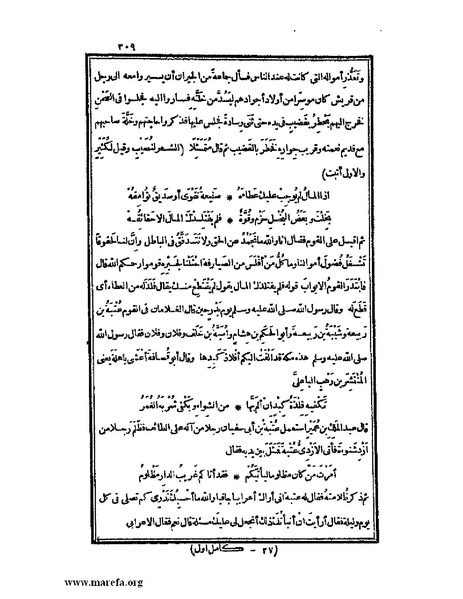 ٣٠٩
وتعذر أمواله التى كانت له عند الناس فسأل جماعة من الجيران أن يسيروا معه الى رجل
من قريش كان موسرا من أولاد أجوادهم ليسد من خلته فساروا اليه فجلسوا فى الصحن
فخرج اليهم يخطر بقضيب فى يده حتى ثنى وسادة فجلس عليها فذكروا حاجتهم وخلة صاحبهم
مع قديم نعمته وقريب جواره فخطر بالقضيب ثم قال متمثلا (الشعر لنصيب وقيل لكثير
والاولى أثبت)
اذا المال لم يوجب عليك عطاءه * صنيعة تقوى أو صديق توامقه
بخلت وبعض البخل حزم وقوة * فلم يفتلذك المال الا حقائقه
ثم أقبل على القوم فقال انا والله ما نجمد عن الحق ولا نتدفق فى الباطل وان لنا لحقوقا
تشغل فضول أموالنا وما كل من أفلس من الصيارفة احتلنا لجبره قوموا رحمكم الله قال
فابتدر القوم الابواب قوله فلم يفتلذك المال يقول لم يقتطع منك يقال فلذ له من العطاء أى
قطع له وقال رسول الله صلى الله عليه وسلم يوم بدر حين قال الغلامان فى القوم عتبة بن
ربيعة وشيبة بن ربيعة وأبو الحكم بن هشام وأمية بن خلف وفلان وفلان فقال رسول الله
صلى الله عليه وسلم هذه مكة قد ألقت اليكم أفلاذ كبدها وقال أبو قحافة أعشى باهلة يعنى
المنتشر بن وهب الباهلى
تكفيه فلذة كبد ان ألم بها * من الشواء ويكفى شربه الغمر
قال عبد الملك بن عمير استعمل عتبة بن أبى سفيان رجلا من آله على الطائف فظلم رجلا من
أزد شنوءة فأتى الأزدى عتبة فمثل بين يديه فقال
أمرت من كان مظلوما ليأتيكم * فقد أتاكم غريب الدار مظلوم
ثم ذكر ظلامته فقال له عتبة انى أراك أعرابيا جافيا والله ما أحسبك تدرى كم تصلى فى كل
يوم وليلة فقال أرأيت ان أنبأتك ذاك أتجعل لى عليك مسئلة قال نعم فقال الاعرابى
(٢٧ - كامل اول)
www.marefa.org